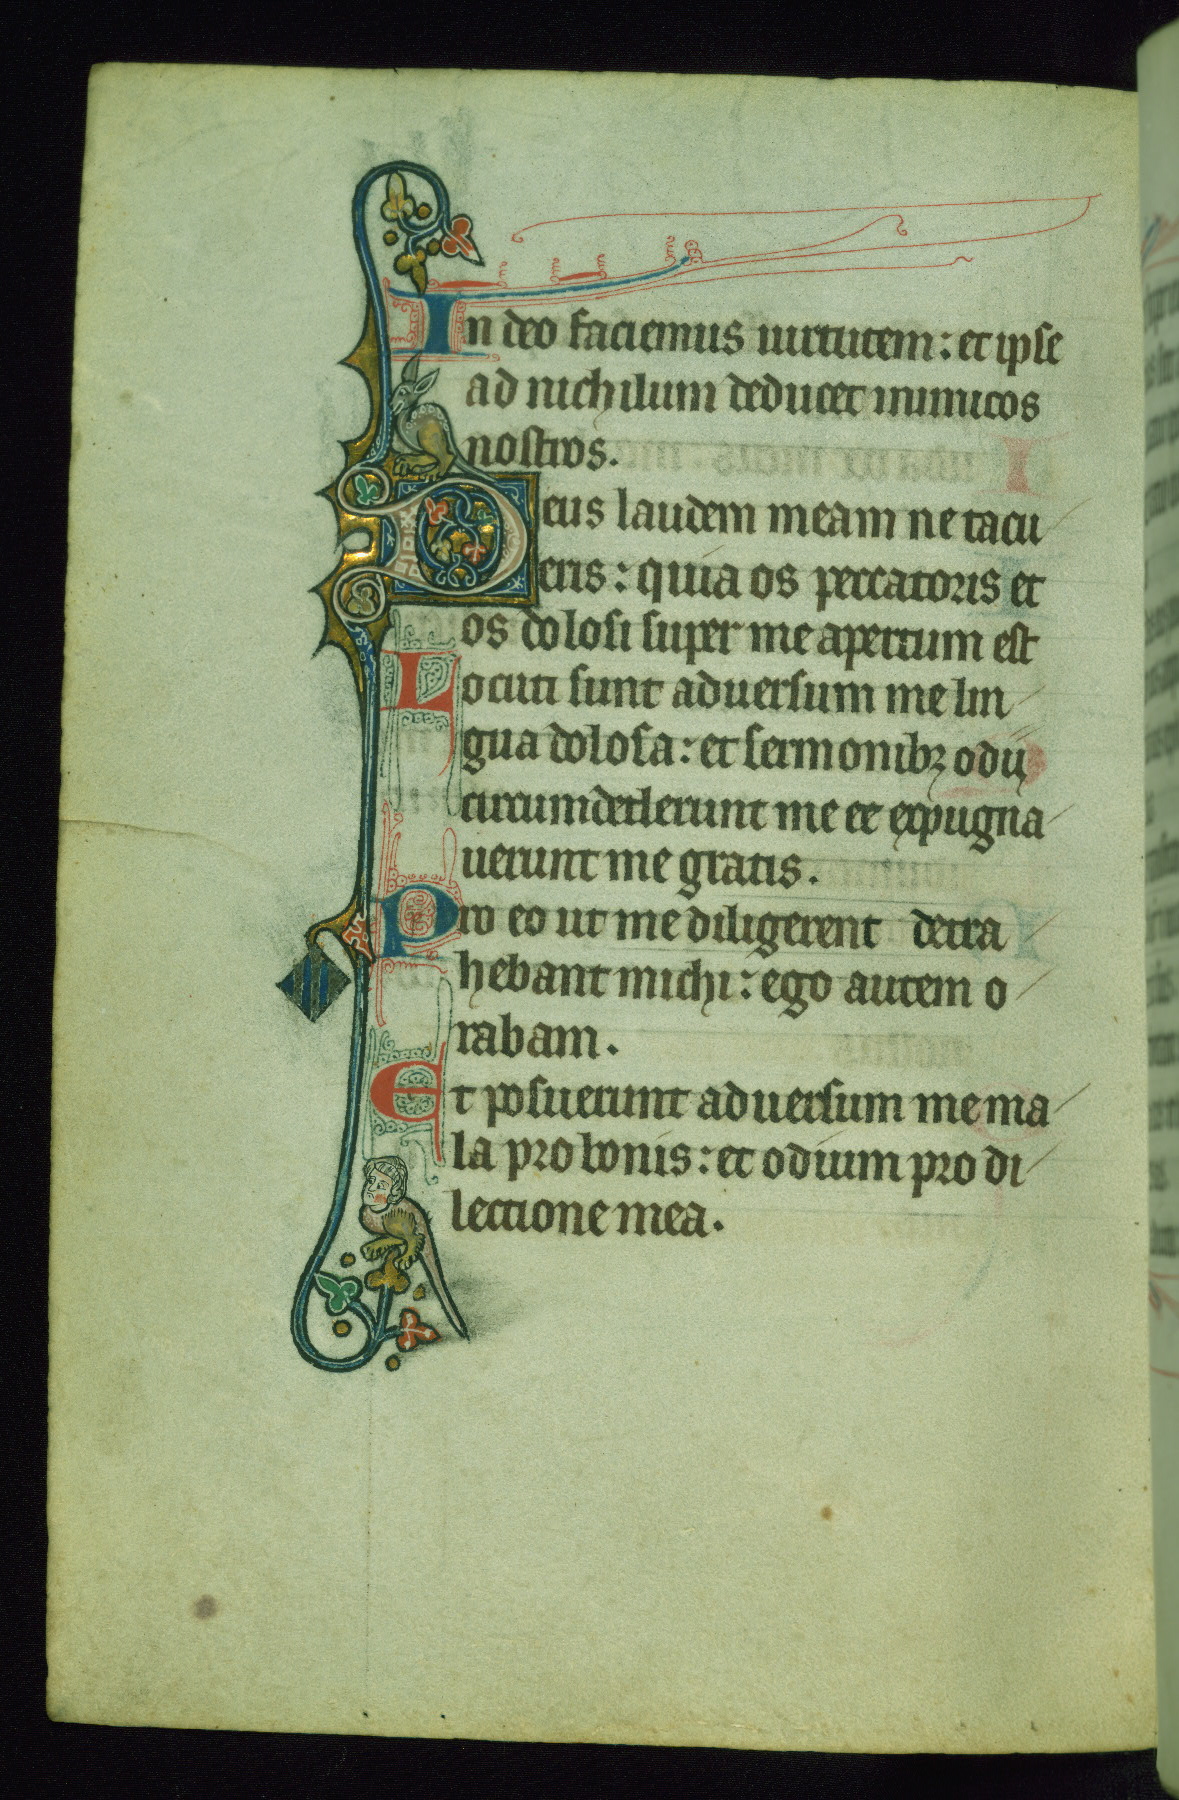 In deo faciemus uirtutem: et ipse
ad nichilum deducet inimicos
nostros.
Deus laudem meam ne tacu
eris: quia os peccatoris et
os dolosi super me apertum est
Locuti sunt aduersum me lin
gua dolosa: et sermonibꝫ odij
circumdederunt me et expugna
uerunt me gratis.
Pro eo ut me diligerent detra
hebant michi: ego autem o
rabam.
Et posuerunt aduersum me ma
la pro bonis: et odium pro di
lectione mea.